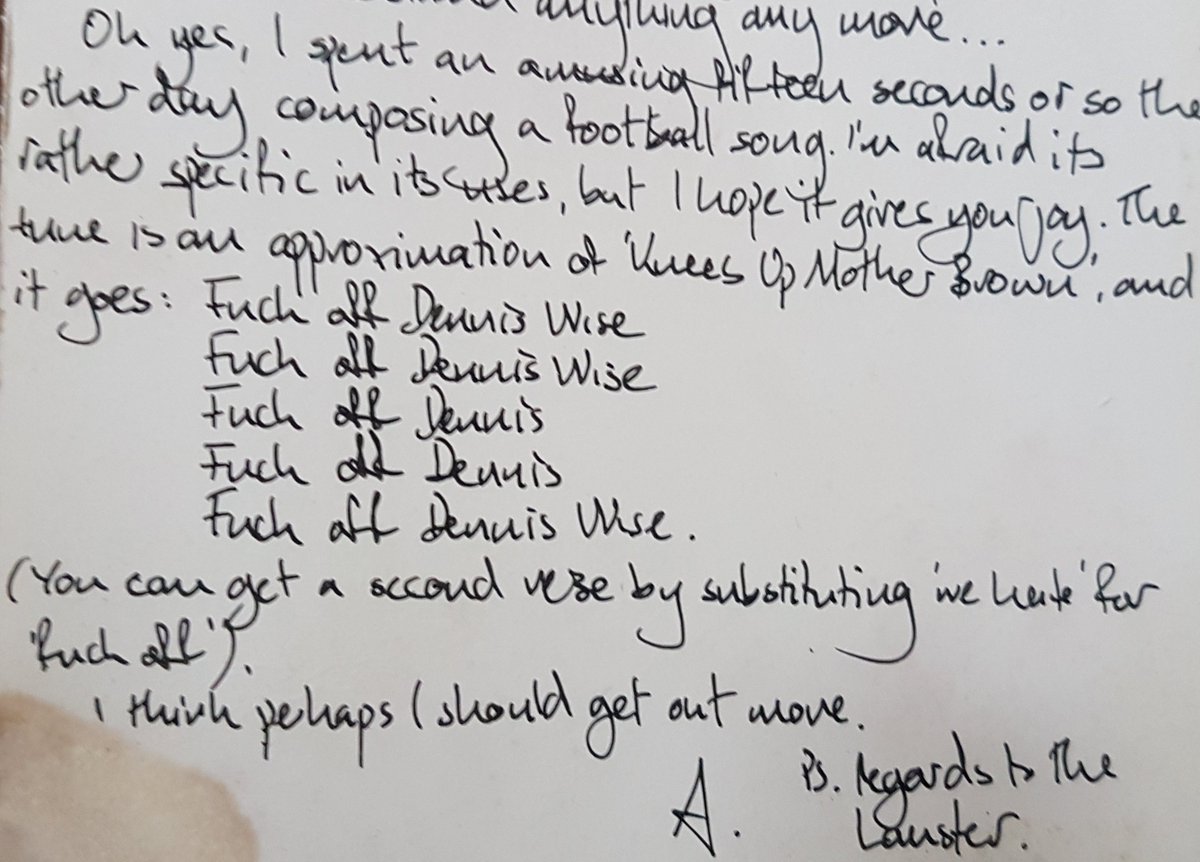 anything any more...
Oh yes, I spent an amusing fifteen seconds or so the
other day composing a football song. I'm afraid its
rather specific in its uses, but I hope it gives you joy. The
tune is an approximation of 'Knees Up Mother Brown', and
it goes: Fuck off Dennis Wise
Fuck off Dennis Wise
Fuck off Dennis
Fuck off Dennis
Fuck off Dennis Wise.
(You can get a second verse by substituting 'we hate' for
'fuck off').
I think perhaps I should get out more.
A.
PS. Regards to the
Lauster.